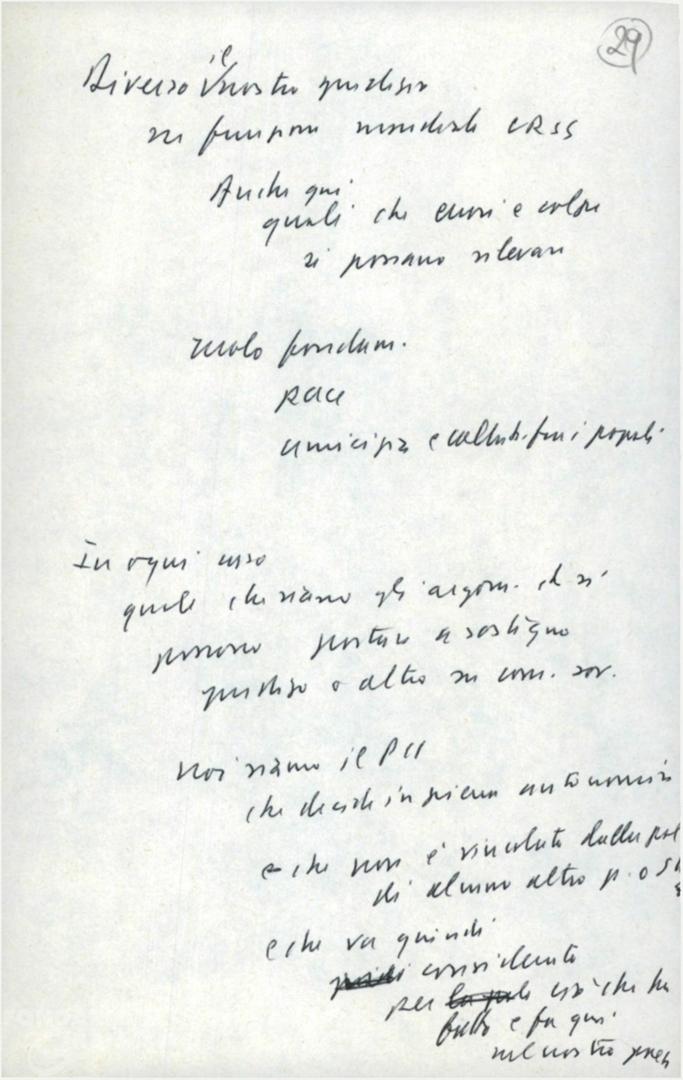 29
il
Diverso nostro giudizio
su funzione mondiale URSS
Anche qui
quali che errori e colpe
si possano rilevare
ruolo fondam.
pace
amicizia e collab. fra i popoli
In ogni caso
quale che siano gli argom. che si
possono portare a sostegno
giudizio o altro su com. sov.
noi siamo il PCI
che decide in piena autonomia
e che non è vincolato dalla pol
di alcuno altro p. o
e che va quindi
considerato
per ciò che ha
fatto e fa qui
nel nostro paes